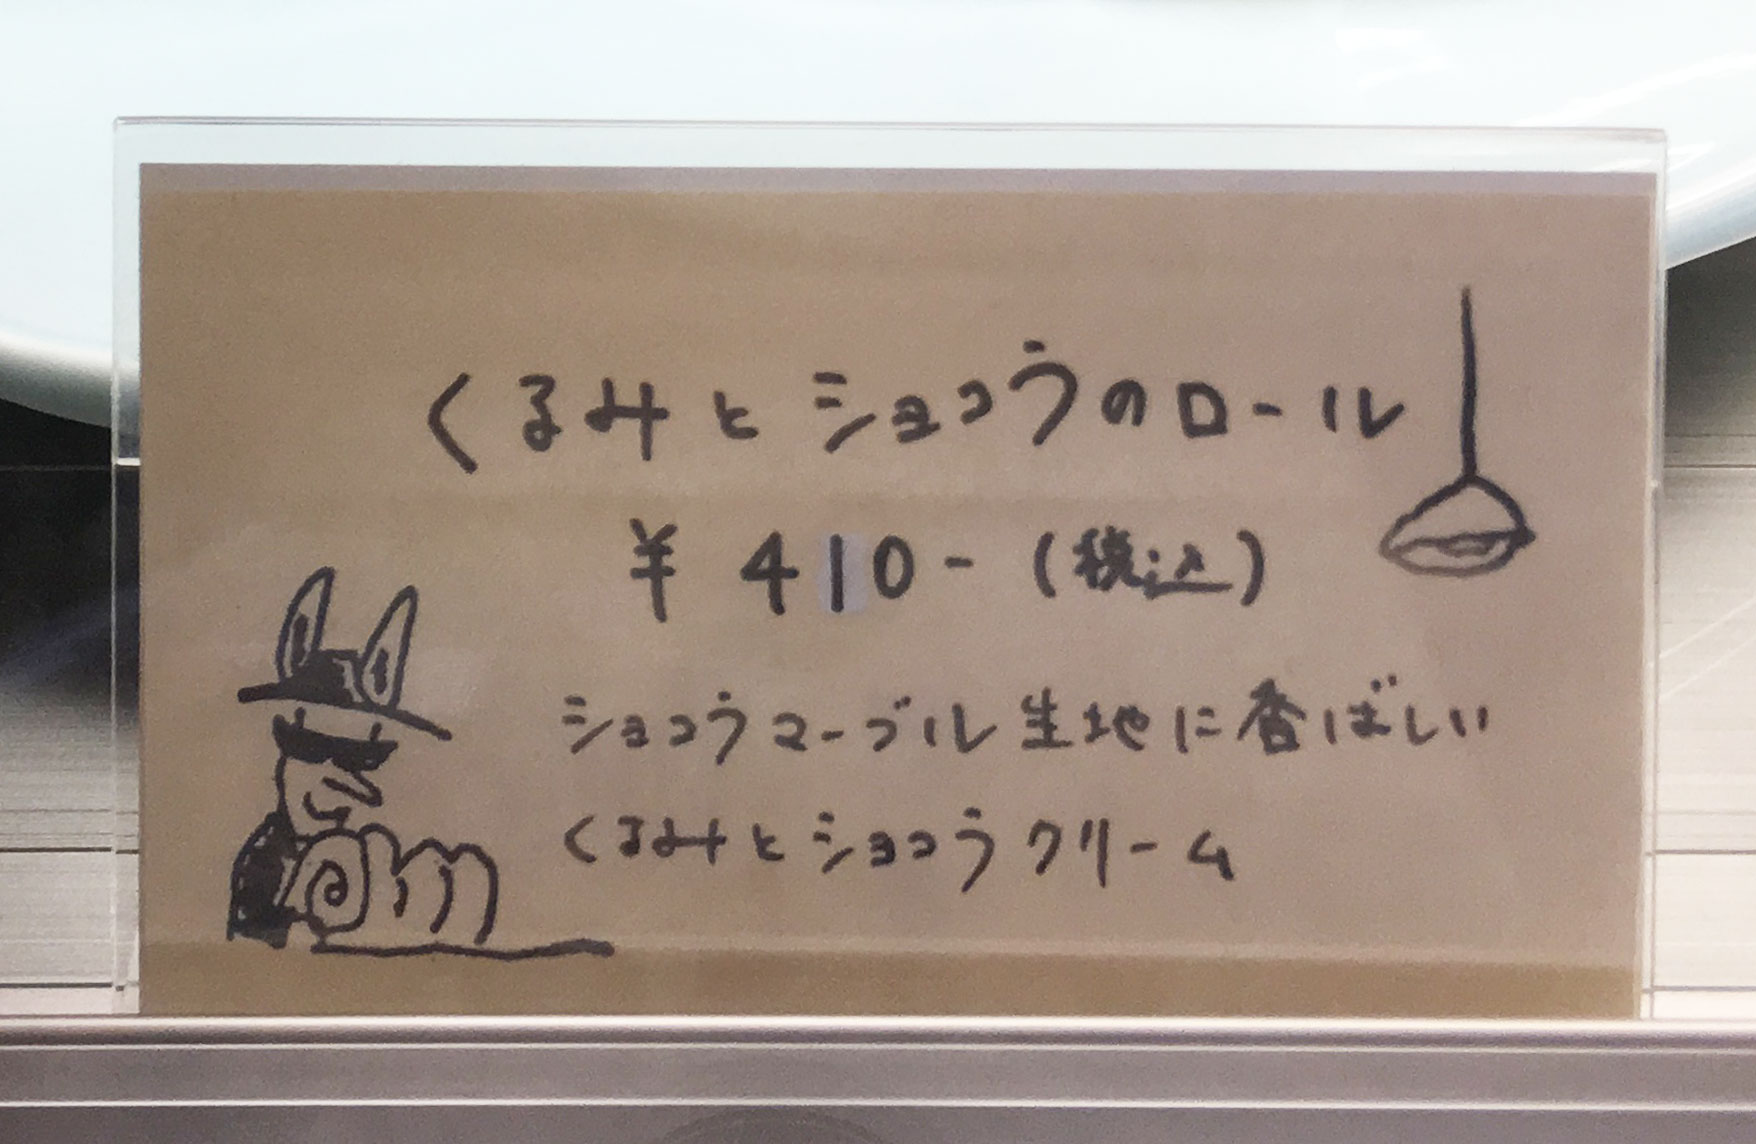 くるみとショコラのロール
¥410-(税込)
ショコラマーブル生地に香ばしい
くるみとショコラクリーム